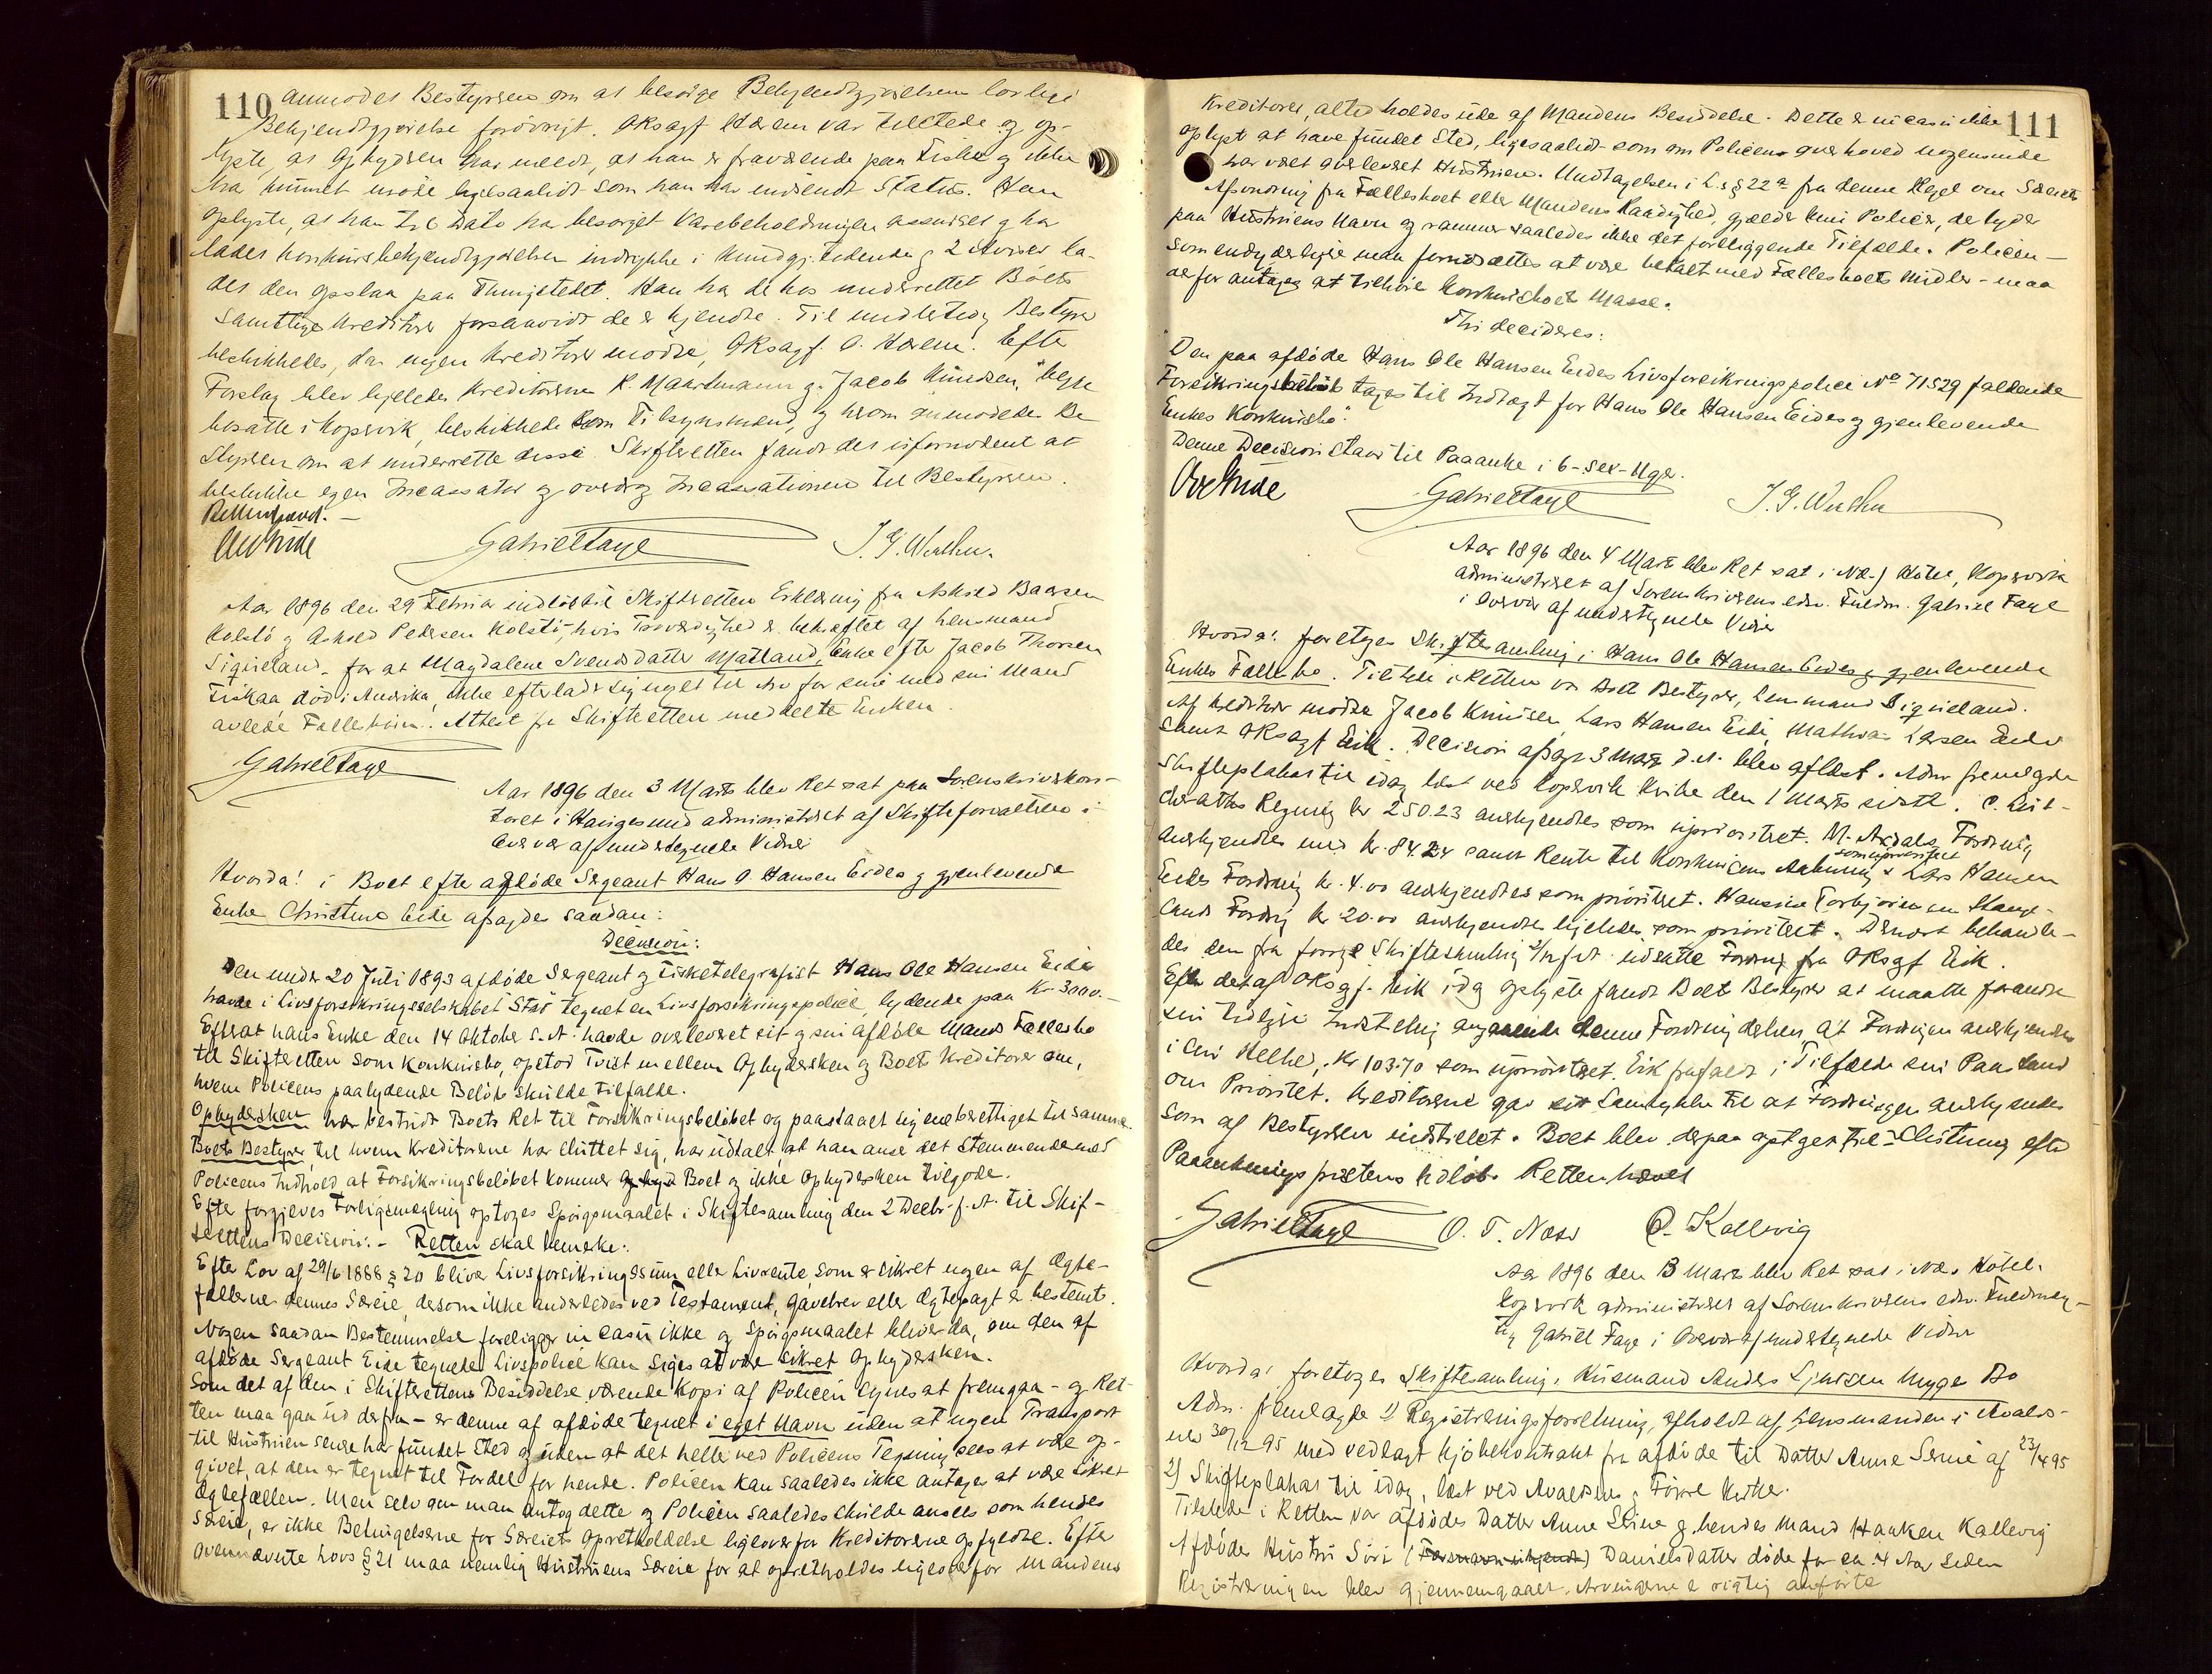 110 anmodet Bestyreren om at besørge Bekjendtgjørelsen lovlig
Bekjendtgjørelse forøvrigt. OKsagf Hærem var tilstede og op-
lyste, at Ophyderen har meldt, at han er fraværende paa Fiske og ikke
har kunnet møde ligesaalidt som han har indsendt Status. Han
oplyste, at han til Dato har besørget Varebeholdningen assureret og har
ladet Konkursbekjendtgjørelsen indrykke i Kundgj.tidende og 2 Aviser la-
det den opslaa paa Thingstedet. Han har dehos underrettet Boets
samtlige Kreditorer forsaavidt de er kjendte. Til midlertidig Bestyrer
beskikkedes, da ingen Kreditorer mødte, OKsagf. O. Hærem. Efter
Forslag blev ligeledes Kreditorerne K. Maartmann og Jacob Knudsen, begge
bosatte i Kopervik, beskikkede som Tilsynsmænd, og hvorom anmodedes Be
styreren om at underrette disse. Skifteretten fandt det ufornødent at
beskikke egen Incassator og overdrog Incassationen til Bestyreren.
Retten hævet. –
Gabriel Faye J. G. Wathne.
Aar 1896 den 29 Februar indløb til Skifteretten Erklæring fra Askild Baarsen
Kolstø og Askild Pedersen Kolstø, hvis Troværdighed er bekræftet af Lensmand
Siqveland, for at Magdalene Svendsdatter Matland, Enke efter Jacob Thorsen
Fiskaa, død i Amerika, ikke efterlader sig noget til Arv for sine med sin Mand
avlede Fællesbørn. Attest fra Skifteretten meddelte Enken.
Gabriel Faye
Aar 1896 den 3 Marts blev Ret sat paa Sorenskriverkon-
toret i Haugesund administreret af Skifteforvalteren i
Overvær af undertegnede Vidner
Hvorda! i Boet efter afdøde Sergeant Hans O. Hansen Eides og gjenlevende
Enke Christine Eide afsagdes saadan:
Decision:
Den under 20 Juli 1893 afdøde Sergeant og Fisketelegrafist Hans Ole Hansen Eide
havde i Livsforsikringsselskabet "Star" tegnet en Livsforsikringspolice, lydende paa Kr. 3000.–
Efterat hans Enke den 14 Oktober s. A. havde overleveret sit og sin afdøde Mands Fællesbo
til Skifteretten som Konkursbo, opstod Tvist mellem Ophydersken og Boets Kreditorer om,
hvem Policens paalydende Beløb skulde tilfalde.
Ophydersken har bestridt Boets Ret til Forsikringsbeløbet og paastaaet sig eneberettiget til samme
Boets Bestyrer, til hvem Kreditorerne har sluttet sig, har udtalt, at han anser det stemmende med
Policens Indhold at Forsikringsbeløbet kommer Boet og ikke Ophydersken tilgode.
Efter forgjæves Forligsmægling optoges Spørgsmaalet i Skiftesamling den 2 Decbr. f. A. til Skif-
terettens Decision. – Retten skal bemærke:
Efter Lov af 29/6 1888 § 20 bliver Livsforsikringssum eller Livrente, som er sikret nogen af Ægte-
fællerne dennes Særeie, dersom ikke anderledes ved Testament, Gavebrev eller Ægtepagt er bestemt.
Nogen saadan Bestemmelse foreligger in casu ikke og Spørgsmaalet bliver da, om den af
afdøde Sergeant Eide tegnede Livspolice kan siges at være sikret Ophydersken.
Som det af den i Skifterettens Besiddelse værende Kopi af Policen synes at fremgaa – og Ret-
ten maa gaa ud derfra – er denne af afdøde tegnet i eget Navn uden at nogen Transport
til Hustruen senere har fundet Sted og uden at det heller ved Policens Tegning sees at være op-
givet, at den er tegnet til Fordel for hende. Policen kan saaledes ikke antages at være sikret
Ægtefællen. Men selv om man antog dette og Policen saaledes skulde ansees som hendes
Særeie, er ikke Betingelserne for Særeiets Opretholdelse ligeoverfor Kreditorerne opfyldte. Efter
ovennævnte Lovs § 21 maa nemlig Hustruens Særeie for at opretholdes ligeoverfor Mandens
111
Kreditorer, altid holdes ude af Mandens Besiddelse. Dette er in casu ikke
oplyst at have fundet Sted, ligesaalidt som om Policens overhoved nogensinde
har været overleveret Hustruen. Undtagelsen i L.s § 22 a fra denne Regel om Særeiets
Afsondring fra Fællesboet eller Mandens Raadighed, gjælder kun Policer, de lyder
paa Hustruens Navn og rammer saaledes ikke det foreliggende Tilfælde. Policen –
som endvidere maa forudsættes at være betalt med Fællesboets Midler – maa
derfor antages at tilhøre Konkursboets Masse.
Thi decideres:
Den paa afdøde Hans Ole Hansen Eides Livsforsikringspolice No 71529 faldende
Forsikringsbeløb tages til Indtægt for Hans Ole Hansen Eides og gjenlevende
Enkes Konkursbo".
Denne Decision staar til Paaanke i 6 – sex – Uger.
Gabriel Faye J. G. Wathne
Aar 1896 den 4 Marts blev Ret sat i Næs' Hotel, Kopervik
administreret af Sorenskriverens edsv. Fuldm. Gabriel Faye
i Overvær af undertegnede Vidner
Hvorda! foretoges Skiftesamling i Hans Ole Hansen Eides og gjenlevende
Enkes Fællesbo. Tilstede i Retten var Boets Bestyrer, Lensmand Siqveland.
Af Kreditorer mødte Jacob Knudsen, Lars Hansen Eide, Mathias Larsen Eide
samt OKsagf Eik. Decision afsagt 3 Marts d. A. blev oplæst. Adm. fremlagde
Skifteplakat til idag læst ved Kopervik Kirke den 1 Marts sidstl. C. 
Regning Kr 250.23 anerkjendtes som uprioriteret. M. Aasdals Fordring
anerkjendtes med Kr. 84.24 samt Rente til Konkursens Aabning som uprioriteret. Lars Hansen
Eides Fordring Kr. 4.00 anerkjendtes som prioriteret. Hansine Torbjørnsen Stange-
lands Fordring Kr 20.00 anerkjendtes ligeledes som prioriteret. Dernæst behandle-
des den fra forrige Skiftesamling 2/12 f. A. udsatte Fordring fra OKsagf Eik.
Efter det af OKsagf. Eik idag oplyste fandt Boets Bestyrer at maatte forandre
sin tidligere Indstilling angaaende denne Fordring derhen, at Fordringen anerkjendes
i sin Helhed, Kr 103.70 som uprioriteret. Eik frafaldt i Tilfælde sin Paastand
om Prioritet. Kreditorerne gav sit Samtykke til at Fordringen anerkjendes
som af Bestyreren indstillet. Boet blev derpaa optaget til Slutning efter
Paaankningsfristens Udløb. Retten hævet
Gabriel Faye O. T. Næss O. Kallevig
Aar 1896 den 13 Marts blev Ret sat i Næs' Hotel.
Kopervik administreret af Sorenskriverens edsv. Fuldmæg-
tig Gabriel Faye i Overvær af undertegnede Vidner
Hvorda! foretoges Skiftesamling i Husmand Anders Bo
Adm. fremlagde 1) Registreringsforretning, afholdt af Lensmanden i Avalds-
nes 30/12 95 med vedlagt Kjøbekontrakt fra afdøde til Datter Anne Serine af 23/4 95
2) Skifteplakat til idag, læst ved Avaldsnes og Førre Kirker.
Tilstede i Retten var afdødes Datter Anne Serine og hendes Mand Haaken Kallevig
Afdødes Hustru Siri Danielsdatter døde for ca. 4 Aar siden
Registreringen blev gjennemgaaet. Arvingerne er rigtig anførte